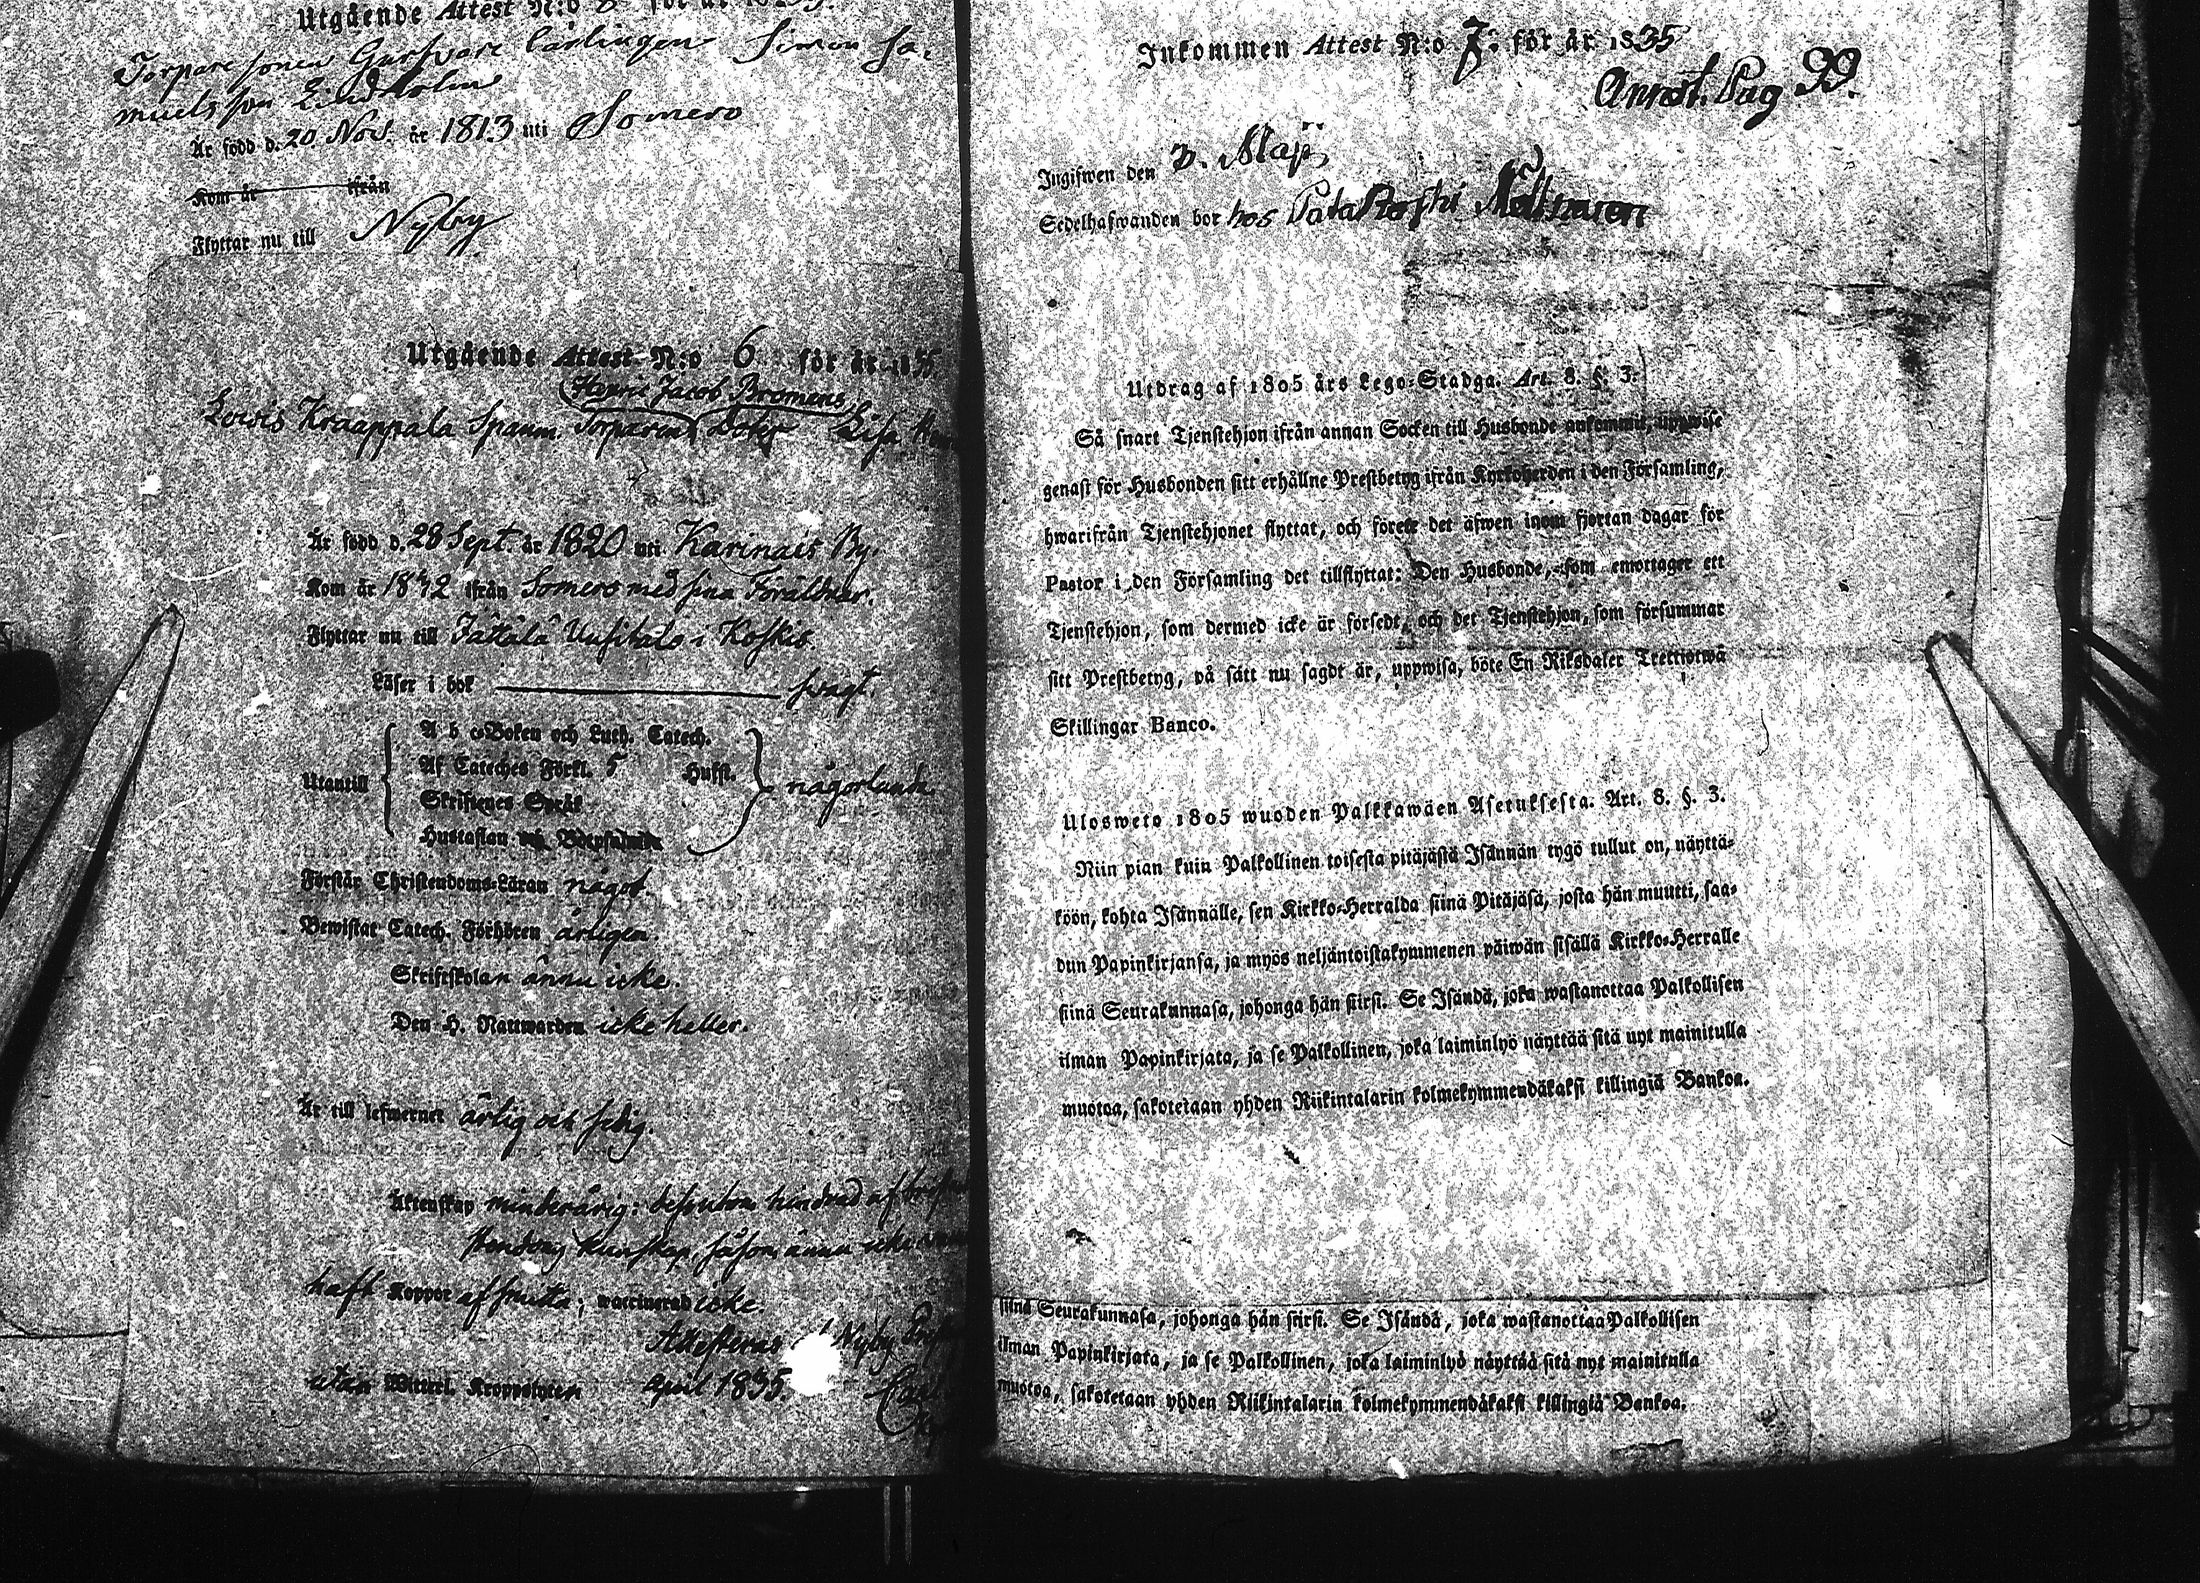 Utgående Attest N:o för år
Torpare sonen Garfvare Lärlingen Simon Sa-
muelsson Lindholm
Är född d. 20 Nov. år 1813 uti Somero
Kom år ifrån
Flyttar nu till Nyby
Utgående Attest N:o 6 för år 1835
Henric Jacob Bromens
Lovis Kraappala Spanm. Torparens Doter Lisa
Är född d. 28 Sept. år 1820 uti Karinais By.
Kom år 1832 ifrån Somero med sina Föräldrar.
Flyttar nu till Jättälä Uusitalo i Koskis.
Läser i bok svagt.
A b c-Boken och Luth. Catech.
Af Cateches Förkl. 5 Hufst.
Utantill någorlunda
Skriftenes Språk
Hustaflan
Förstår Christendoms-Läran något.
Bewistat Catech. Förhören årligen.
Skriftskolan ännu icke.
Den H. Nattwarden icke heller.
Är till lefwernet ärlig och sedig.
Äktenskap minderårig: dessutom hindrad af
kunskap, såsom ännu icke
haft Koppor af smitta; waccinerad icke.
Attesteras Nyby
utan Witterl. Kroppslyten April 1835.
Inkommen Attest N:o 7. för år 1835
Annot. Pag 99.
Ingifwen den 3. Maji
Sedelhafwanden bor hos
Utdrag af 1805 års Lego-Stadga. Art. 8. §. 3.
Så snart Tjenstehjon ifrån annan Socken till Husbonde ankommit, uppwise
genast för Husbonden sitt erhållne Prestbetyg ifrån Kyrkoherden i den Församling,
hwarifrån Tjenstehjonet flyttat, och förete det äfwen inom fjortan dagar för
Pastor i den Församling det tillflyttat: Den Husbonde, som emottager ett
Tjenstehjon, som dermed icke är försedt, och det Tjenstehjon, som försummar
sitt Prestbetyg, på sätt nu sagdt är, uppwisa, böte En Riksdaler Trettiotwå
Skillingar Banco.
Ulosweto 1805 wuoden Palkkawäen Asetuksesta. Art. 8. §. 3.
Niin pian kuin Palkollinen toisesta pitäjästä Isännän tygö tullut on, näyttä-
köön, kohta Isännälle, sen Kirkko-Herralda siinä Pitäjäsä, josta hän muutti, saa-
dun Papinkirjansa, ja myös neljäntoistakymmenen päiwän sisällä Kirkko-Herralle
siinä Seurakunnasa, johonga hän siirsi. Se Isändä, joka wastanottaa Palkollisen
ilman Papinkirjata, ja se Palkollinen, joka laiminlyö näyttää sitä nyt mainitulla
muotoa, sakotetaan yhden Riikintalarin kolmekymmendäkaksi killingiä Bankoa.
siinä Seurakunnasa, johonga hän siirsi. Se Isändä, joka wastanottaa Palkollisen
ilman Papinkirjata, ja se Palkollinen, joka laiminlyö näyttää sitä nyt mainitulla
muotoa, sakotetaan yhden Riikintalarin kolmekymmendäkaksi killingiä Bankoa.